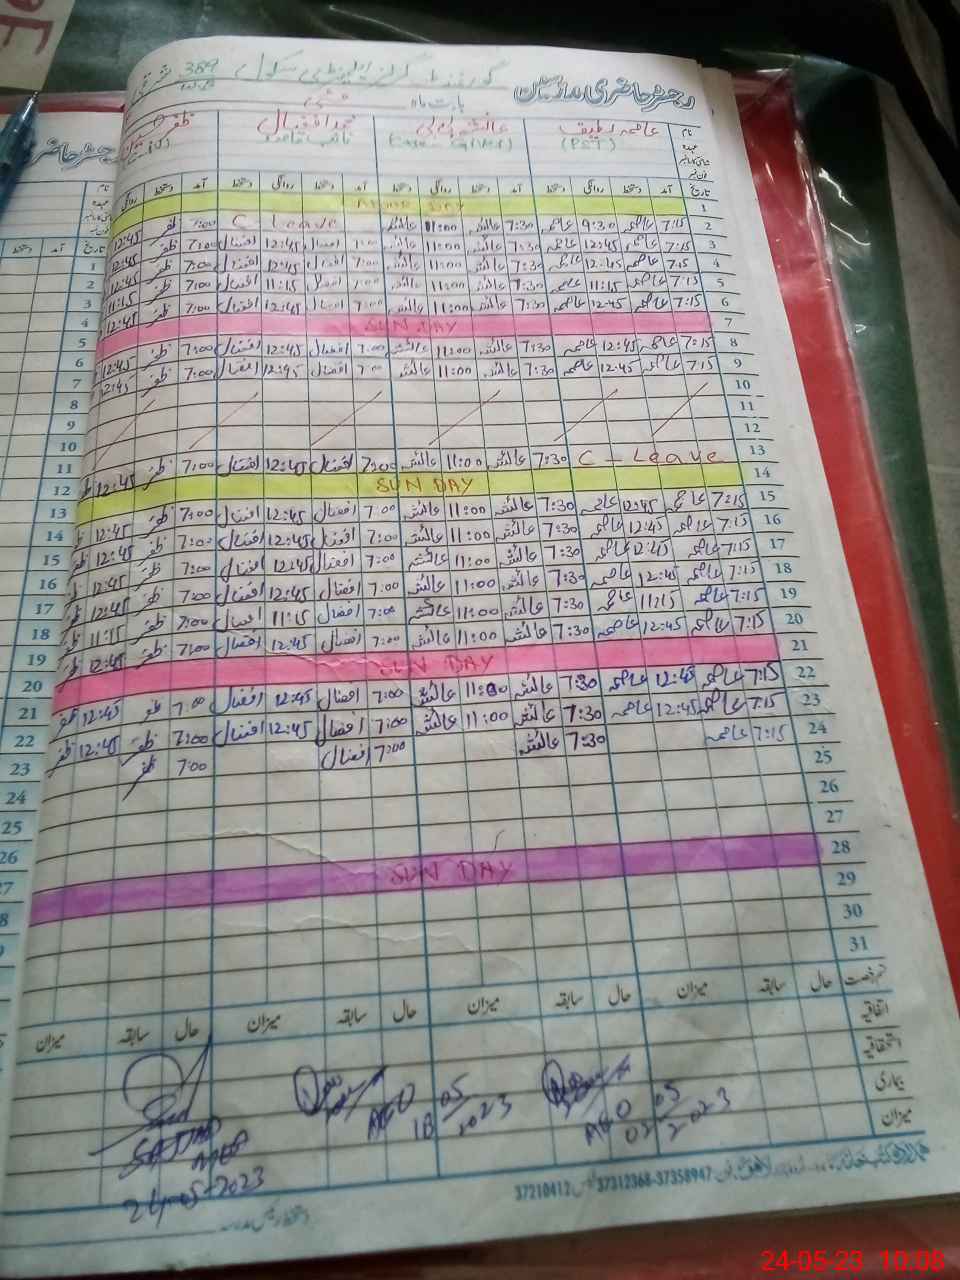 رجسٹر حاضری ملازمین
گورنمنٹ گرلز ایلیمنٹری سکول 389
بابت ماہ مئی
نام عاصمہ لطیف عائشہ بی بی محمد افضال ظفر
عہدہ (PST) نائب قاصد
تاریخ آمد دستخط روانگی دستخط آمد دستخط روانگی دستخط آمد دستخط روانگی دستخط آمد دستخط روانگی
1 DAY
2 7:15 عاصمہ 9:30 عاصمہ 7:30 عائشہ 11:00 عائشہ C - Leave 7:00 ظفر 12:45
3 7:15 عاصمہ 12:45 عاصمہ 7:30 عائشہ 11:00 عائشہ 7:00 افضال 12:45 افضال 7:00 ظفر 12:45
4 7:15 عاصمہ 12:45 عاصمہ 7:30 عائشہ 11:00 عائشہ 7:00 افضال 12:45 افضال 7:00 ظفر 12:45
5 7:15 عاصمہ 11:15 عاصمہ 7:30 عائشہ 11:00 عائشہ 7:00 افضال 11:15 افضال 7:00 ظفر 11:15
6 7:15 عاصمہ 12:45 عاصمہ 7:30 عائشہ 11:00 عائشہ 7:00 افضال 12:45 افضال 7:00 ظفر 12:45
7 SUN DAY
8 7:15 عاصمہ 12:45 عاصمہ 7:30 عائشہ 11:00 عائشہ 7:00 افضال 12:45 افضال 7:00 ظفر 12:45
9 7:15 عاصمہ 12:45 عاصمہ 7:30 عائشہ 11:00 عائشہ 7:00 افضال 12:45 افضال 7:00 ظفر 12:45
10
11
12
13 C - Leave 7:30 عائشہ 11:00 عائشہ 7:00 افضال 12:45 افضال 7:00 ظفر 12:45
14 SUN DAY
15 7:15 عاصمہ 12:45 عاصمہ 7:30 عائشہ 11:00 عائشہ 7:00 افضال 12:45 افضال 7:00 ظفر 12:45
16 7:15 عاصمہ 12:45 عاصمہ 7:30 عائشہ 11:00 عائشہ 7:00 افضال 12:45 افضال 7:00 ظفر 12:45
17 7:15 عاصمہ 12:45 عاصمہ 7:30 عائشہ 11:00 عائشہ 7:00 افضال 12:45 افضال 7:00 ظفر 12:45
18 7:15 عاصمہ 12:45 عاصمہ 7:30 عائشہ 11:00 عائشہ 7:00 افضال 12:45 افضال 7:00 ظفر 12:45
19 7:15 عاصمہ 11:15 عاصمہ 7:30 عائشہ 11:00 عائشہ 7:00 افضال 11:15 افضال 7:00 ظفر 11:15
20 7:15 عاصمہ 12:45 عاصمہ 7:30 عائشہ 11:00 عائشہ 7:00 افضال 12:45 افضال 7:00 ظفر 12:45
21 SUN DAY
22 7:15 عاصمہ 12:45 عاصمہ 7:30 عائشہ 11:00 عائشہ 7:00 افضال 12:45 افضال 7:00 ظفر 12:45 ظفر
23 7:15 عاصمہ 12:45 عاصمہ 7:30 عائشہ 11:00 عائشہ 7:00 افضال 12:45 افضال 7:00 ظفر 12:45 ظفر
24 7:15 عاصمہ 7:30 عائشہ 7:00 افضال 7:00 ظفر
25
26
27
28 SUN DAY
29
30
31
قسم رخصت حال سابقہ میزان حال سابقہ میزان حال سابقہ میزان
اتفاقیہ
استحقاقیہ
بیماری
میزان
AEO 02/05/2023
AEO 18/05/2023
SAJJAD
24-05-2023
37210412 37312368-37358947
رجسٹر حاضری
نام
عہدہ
تاریخ آمد دستخط
1
2
3
4
5
6
7
8
9
10
11
12
13
14
15
16
17
18
19
20
21
22
23
24
25
26
24-05-23 10:08